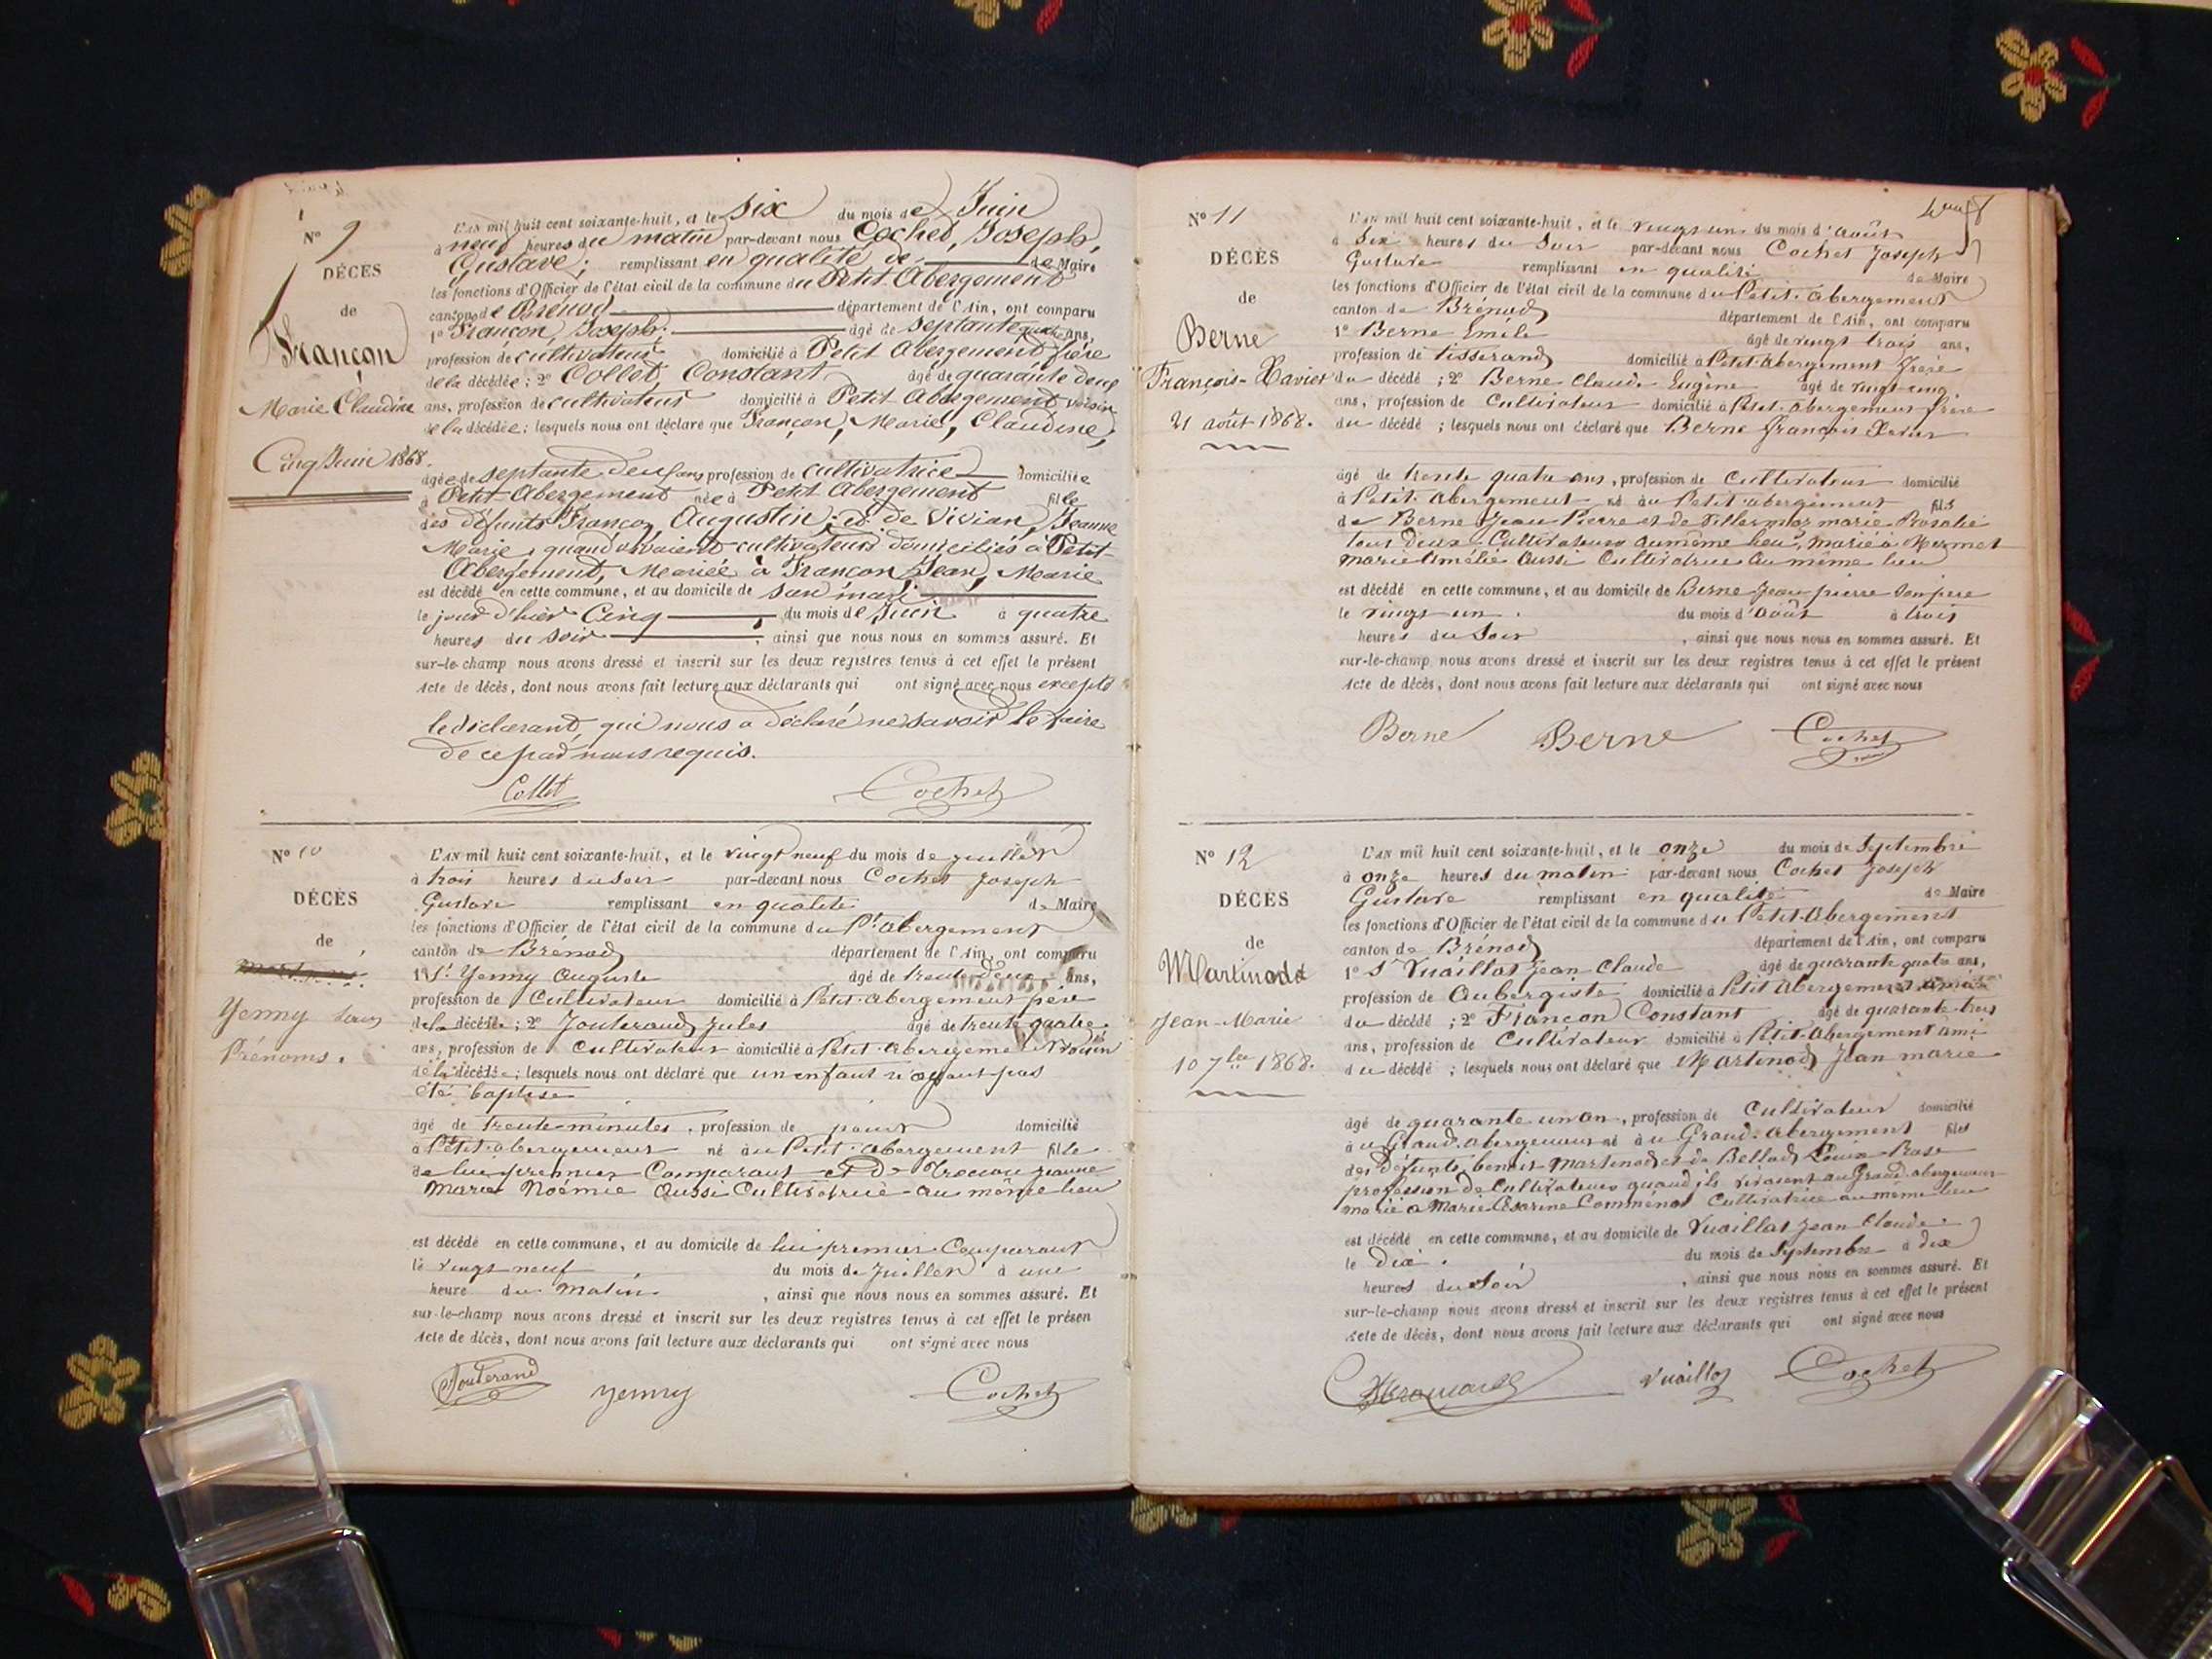 N° 9
DÉCÈS
de
Françon
Marie Claudine
Cinq Juin 1868.
L'AN mil huit cent soixante-huit, et le six du mois de Juin
à neuf heures du matin par-devant nous Cochet, Joseph,
Gustave; remplissant en qualité de de Maire
les fonctions d'Officier de l'état civil de la commune du Petit Abergement
canton de Brénod département de l'Ain, ont comparu
1° Françon, Joseph; âgé de septante quatre ans,
profession de cultivateur domicilié à Petit Abergement frère
de la décédée; 2° Collet, Constant âgé de quarante deux
ans, profession de cultivateur domicilié à Petit Abergement voisin
de la décédée; lesquels nous ont déclaré que Françon, Marie, Claudine,
âgée de septante deux ans profession de cultivatrice domiciliée
à Petit Abergement née à Petit Abergement fille
des défunts Françon, Augustin; et de Vivian, Jeanne
Marie, quand vivaient cultivateurs domiciliés à Petit
Abergement, Mariée à Françon Jean, Marie
est décédé en cette commune, et au domicile de son mari
le jour d'hier Cinq du mois de Juin à quatre
heures du soir , ainsi que nous nous en sommes assuré. Et
sur-le-champ nous avons dressé et inscrit sur les deux registres tenus à cet effet le présent
Acte de décès, dont nous avons fait lecture aux déclarants qui ont signé avec nous excepté
le déclarant, qui nous a déclaré ne savoir le faire
de ce par nous requis.
Collet Cochet
N° 10
DÉCÈS
de
Yenny sans
Prénoms.
L'AN mil huit cent soixante-huit, et le vingt neuf du mois de juillet
à trois heures du soir par-devant nous Cochet Joseph
Gustave remplissant en qualité de Maire
les fonctions d'Officier de l'état civil de la commune du Pt abergement
canton de Brénod département de l'Ain, ont comparu
1° Sr Yenny Auguste âgé de trente deux ans,
profession de Cultivateur domicilié à Petit-abergement père
de la décédée; 2° Jouterand Jules âgé de trente quatre
ans, profession de Cultivateur domicilié à Petit-abergement voisin
de la décédée; lesquels nous ont déclaré que un enfant n'ayant pas
été baptisé
âgé de trente minutes, profession de point domicilié
à Petit-abergement né au Petit-abergement fille
de lui premier Comparant et de Jeanne
Marie Noémie aussi Cultivatrice au même lieu
est décédé en cette commune, et au domicile de lui premier Comparant
le vingt neuf du mois de Juillet à une
heure du matin , ainsi que nous nous en sommes assuré. Et
sur-le-champ nous avons dressé et inscrit sur les deux registres tenus à cet effet le présen
Acte de décès, dont nous avons fait lecture aux déclarants qui ont signé avec nous
Jouterand Yenny Cochet
N° 11
DÉCÈS
de
Berne
François-Xavier
21 août 1868.
L'AN mil huit cent soixante-huit, et le vingt un du mois d'août
à six heures du soir par-devant nous Cochet Joseph
Gustave remplissant en qualité de Maire
les fonctions d'Officier de l'état civil de la commune du Petit-abergement
canton de Brénod département de l'Ain, ont comparu
1° Berne Emile âgé de vingt trois ans,
profession de tisserand domicilié à Petit-abergement frère
du décédé; 2° Berne Claude Eugène âgé de vingt-cinq
ans, profession de Cultivateur domicilié à Petit-abergement frère
du décédé; lesquels nous ont déclaré que Berne françois Xavier
âgé de trente quatre ans, profession de Cultivateur domicilié
à Petit-abergement né au Petit-abergement fils
de Berne Jean Pierre et de Villermoz marie Rosalie
tous deux Cultivateurs au même lieu, marié à Mermet
marie Amélie aussi Cultivatrice au même lieu
est décédé en cette commune, et au domicile de Berne Jean pierre son père
le vingt un du mois d'août à trois
heures du soir , ainsi que nous nous en sommes assuré. Et
sur-le-champ nous avons dressé et inscrit sur les deux registres tenus à cet effet le présent
Acte de décès, dont nous avons fait lecture aux déclarants qui ont signé avec nous
Berne Berne Cochet
N° 12
DÉCÈS
de
Martinod
Jean-Marie
10 7bre 1868.
L'AN mil huit cent soixante-huit, et le onze du mois de Septembre
à onze heures du matin par-devant nous Cochet Joseph
Gustave remplissant en qualité de Maire
les fonctions d'Officier de l'état civil de la commune du Petit-Abergement
canton de Brénod département de l'Ain, ont comparu
1° Sr Vuaillat Jean Claude âgé de quarante quatre ans,
profession de Aubergiste domicilié à Petit Abergement ami
du décédé; 2° Françon Constant âgé de quarante-trois
ans, profession de Cultivateur domicilié à Petit-Abergement ami
du décédé; lesquels nous ont déclaré que Martinod Jean marie
âgé de quarante un an, profession de Cultivateur domicilié
à u Grand abergement né à u Grand-Abergement fils
des défunts benoit Martinod et de Bellod Louise Rose
profession de Cultivateurs quand ils vivaient au Grand-abergement
marié a Marie Césarine Cultivatrice au même lieu
est décédé en cette commune, et au domicile de Vuaillat Jean Claude
le dix. du mois de Septembre à dix
heures du soir , ainsi que nous nous en sommes assuré. Et
sur-le-champ nous avons dressé et inscrit sur les deux registres tenus à cet effet le présent
Acte de décès, dont nous avons fait lecture aux déclarants qui ont signé avec nous
Vuaillat Cochet